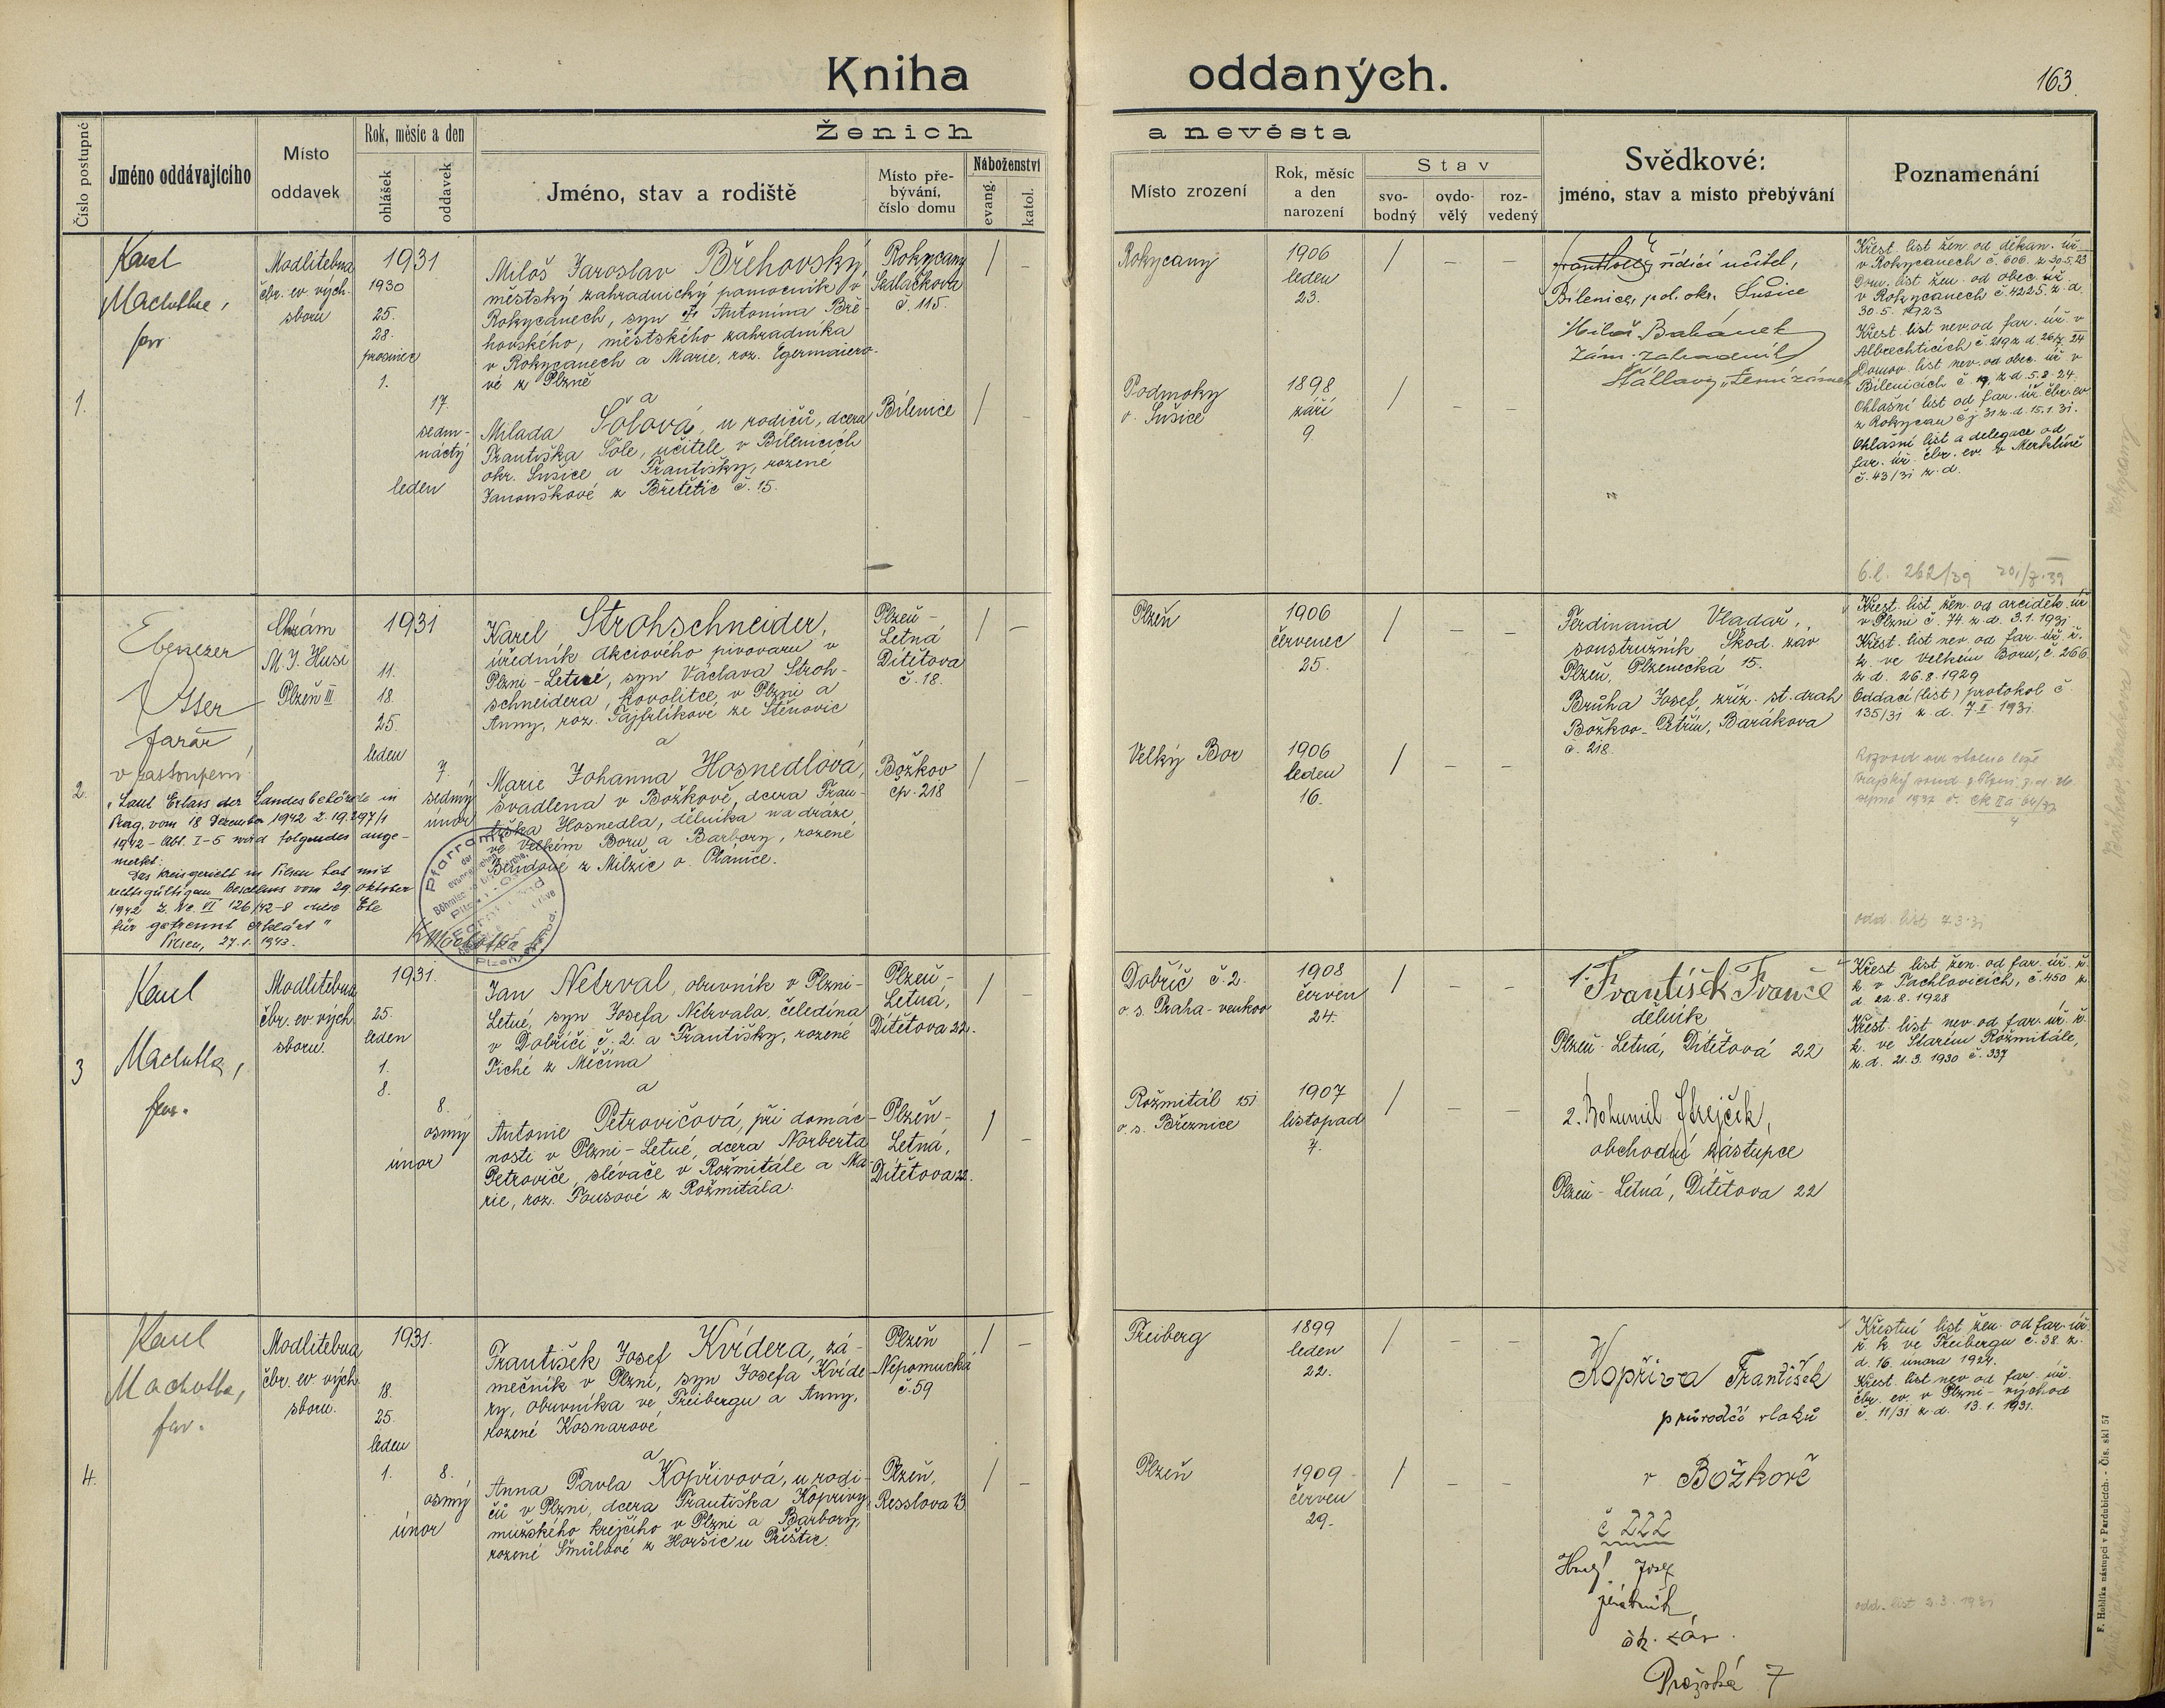 Kniha oddaných.
163
Číslo postupné
Jméno oddávajícího
Místo
oddavek
Rok, měsíc a den
ohlášek
oddavek
Ženich a nevěsta
Jméno, stav a rodiště
Místo pře-
bývání,
číslo domu
Náboženství
evang.
katol.
Místo zrození
Rok, měsíc
a den
narození
Stav
svo-
bodný
ovdo-
vělý
roz-
vedený
Svědkové:
jméno, stav a místo přebývání
Poznamenání
1.
Karel
Machotka,
far.
Modlitebna
čbr. ev. vých.
sboru
1931
1930
25.
28.
prosinec
1.
17.
sedm-
náctý
leden
Miloš Jaroslav Břehovský,
městský zahradnický pomocník v
Rokycanech, syn Antonína Bře-
hovského, městského zahradníka
v Rokycanech a Marie, roz. Egermaiero-
vé z Plzně
a
Milada Šolová, u rodičů, dcera
Františka Šole, učitele v Bílenicích
okr. Sušice a Františky, rozené
Janouškové z Břetětic č. 15.
Rokycany
Sedláčkova
č. 115.
Bílenice
/ –
/ –
Rokycany
1906
leden
23.
/ – –
Podmoky
o. Sušice
1898
září
9.
/ – –
řídící učitel,
Bílenice, pol. okr. Sušice
Miloš Babánek
zám. zahradník
Křest. list žen. od děkan. úř.
v Rokycanech č. 606. z 30.5.23
Dom. list žen. od obec. úř.
v Rokycanech č. 4225. z. d.
30.5. 1923
Křest. list nev. od far. úř. v
Albrechticích č. 219 z d. 26/7. 24
Domov. list nev. od obec. úř. v
Bílenicích č. 19, z d. 5.8.24.
Ohlašní list od far. úř. čbr. ev.
z Rokycan čj 31 z. d. 15.1.31.
Ohlašní list a delegace od
far. úř. čbr. ev. v Merklíně
č. 43/31 z. d.
č.l. 262/39
2.
Ebenezer
Otter
farář,
v zastoupení
Chrám
M. J. Husi
Plzeň III
1931
11.
18.
25.
leden
7.
sedmý
únor
Karel Strohschneider,
úředník Akciového pivovaru v
Plzni - Letné, syn Václava Stroh-
schneidera, kovolitce v Plzni a
Anny, roz. Fajfrlíkové ze Štěnovic
a
Marie Johanna Hosnedlová,
švadlena v Božkově, dcera Fran-
tiška Hosnedla, dělníka na dráze
ve Velkém Boru a Barbory, rozené
z Milčic o. Plánice.
Plzeň -
Letná
Dítětova
č. 18.
Božkov
čp. 218
/ –
/ –
"Laut Erlass der Landesbehörde in
Prag, vom 18 Dezember 1942 Z. 19.297/1
1942 - Abt. I-5 wird folgendes ange-
merkt:
Das Kreisgericht in Pilsen hat mit
rechtsgültigem Beschluss vom 29. Oktober
1942 Z. Nc. VI 126/42-8 diese Ehe
für getrennt erklärt"
Pilsen, 27.1. 1943.
K. Machotka f.
Pfarramt
der
Plzeň
Plzeň
1906
červenec
25.
/ – –
Velký Bor
1906
leden
16.
/ – –
Ferdinand Vladař,
soustružník Škod. záv
Plzeň, Plzenecká 15.
Brůha Josef, zříz. st. drah
Božkov - Petřín, Barákova
č. 218.
Křest. list žen. od arciděk. úř.
v Plzni č. 74. z. d. 3.1.1931
Křest. list nev. od far. úř. ř.
k. ve Velkém Boru, č. 266
z d. 26.8.1929
Oddací (list) protokol č.
135/31 z. d. 7.II.1931.
Rozvod od stolu a lože
odd. list 7.3.31
3
Karel
Machotka,
far.
Modlitebna
čbr. ev. vých.
sboru.
1931.
25.
leden
1.
8.
8.
osmý
únor
Jan Netrval, obuvník v Plzni -
Letné, syn Josefa Netrvala, čeledína
v Dobříči č. 2. a Františky, rozené
Tiché z Měčína
a
Antonie Petrovičová, při domác-
nosti v Plzni - Letné, dcera Norberta
Petroviče, slévače v Rožmitále a Ma-
rie, roz. Pousové z Rožmitála.
Plzeň -
Letná,
Dítětova 22.
Plzeň -
Letná,
Dítětova 22.
/ –
/ –
Dobříč č. 2.
o. s. Praha - venkov
1908
červen
24.
/ – –
Rožmitál 151
o. s. Březnice
1907
listopad
7.
/ – –
1. František
dělník
Plzeň - Letná, Dítětová 22
2. Bohumil Strejček,
obchodní zástupce
Plzeň - Letná, Dítětova 22
Křest. list žen. od far. úř. ř.
k. v Pachlovicích, č. 450 z.
d. 22.8.1928
Křest. list nev. od far. úř. ř.
k. ve Starém Rožmitále,
z. d. 21.3.1930 č. 337
4.
Karel
Machotka,
far.
Modlitebna
čbr. ev. vých.
sboru.
1931.
18.
25.
leden
1.
8.
osmý
únor
František Josef Kvídera, zá-
mečník v Plzni, syn Josefa Kvíde-
ry, obuvníka ve Freibergu a Anny,
rozené Kosnarové
a
Anna Pavla Kopřivová, u rodi-
čů v Plzni, dcera Františka Kopřivy,
mužského krejčího v Plzni a Barbory,
rozené Šmůlové z Horšic u Přeštic.
Plzeň
Nepomucká
č. 59
Plzeň,
Resslova 13
/ –
/ –
Freiberg
1899
leden
22.
/ – –
Plzeň
1909
červen
29.
/ – –
Kopřiva František
průvodčí vlaků
v Božkově
č 222
Josef
šk. záv.
Pražská 7
Křestní list žen. od far. úř.
ř. k. ve Freibergu č. 38. z.
d. 16. února 1924.
Křest. list nev. od far. úř.
čbr. ev. v Plzni - východ
č. 11/31 z. d. 13.1.1931.
odd. list 3.3.1931
F. Hoblíka nástupci v Pardubicích. - Čís. skl 57